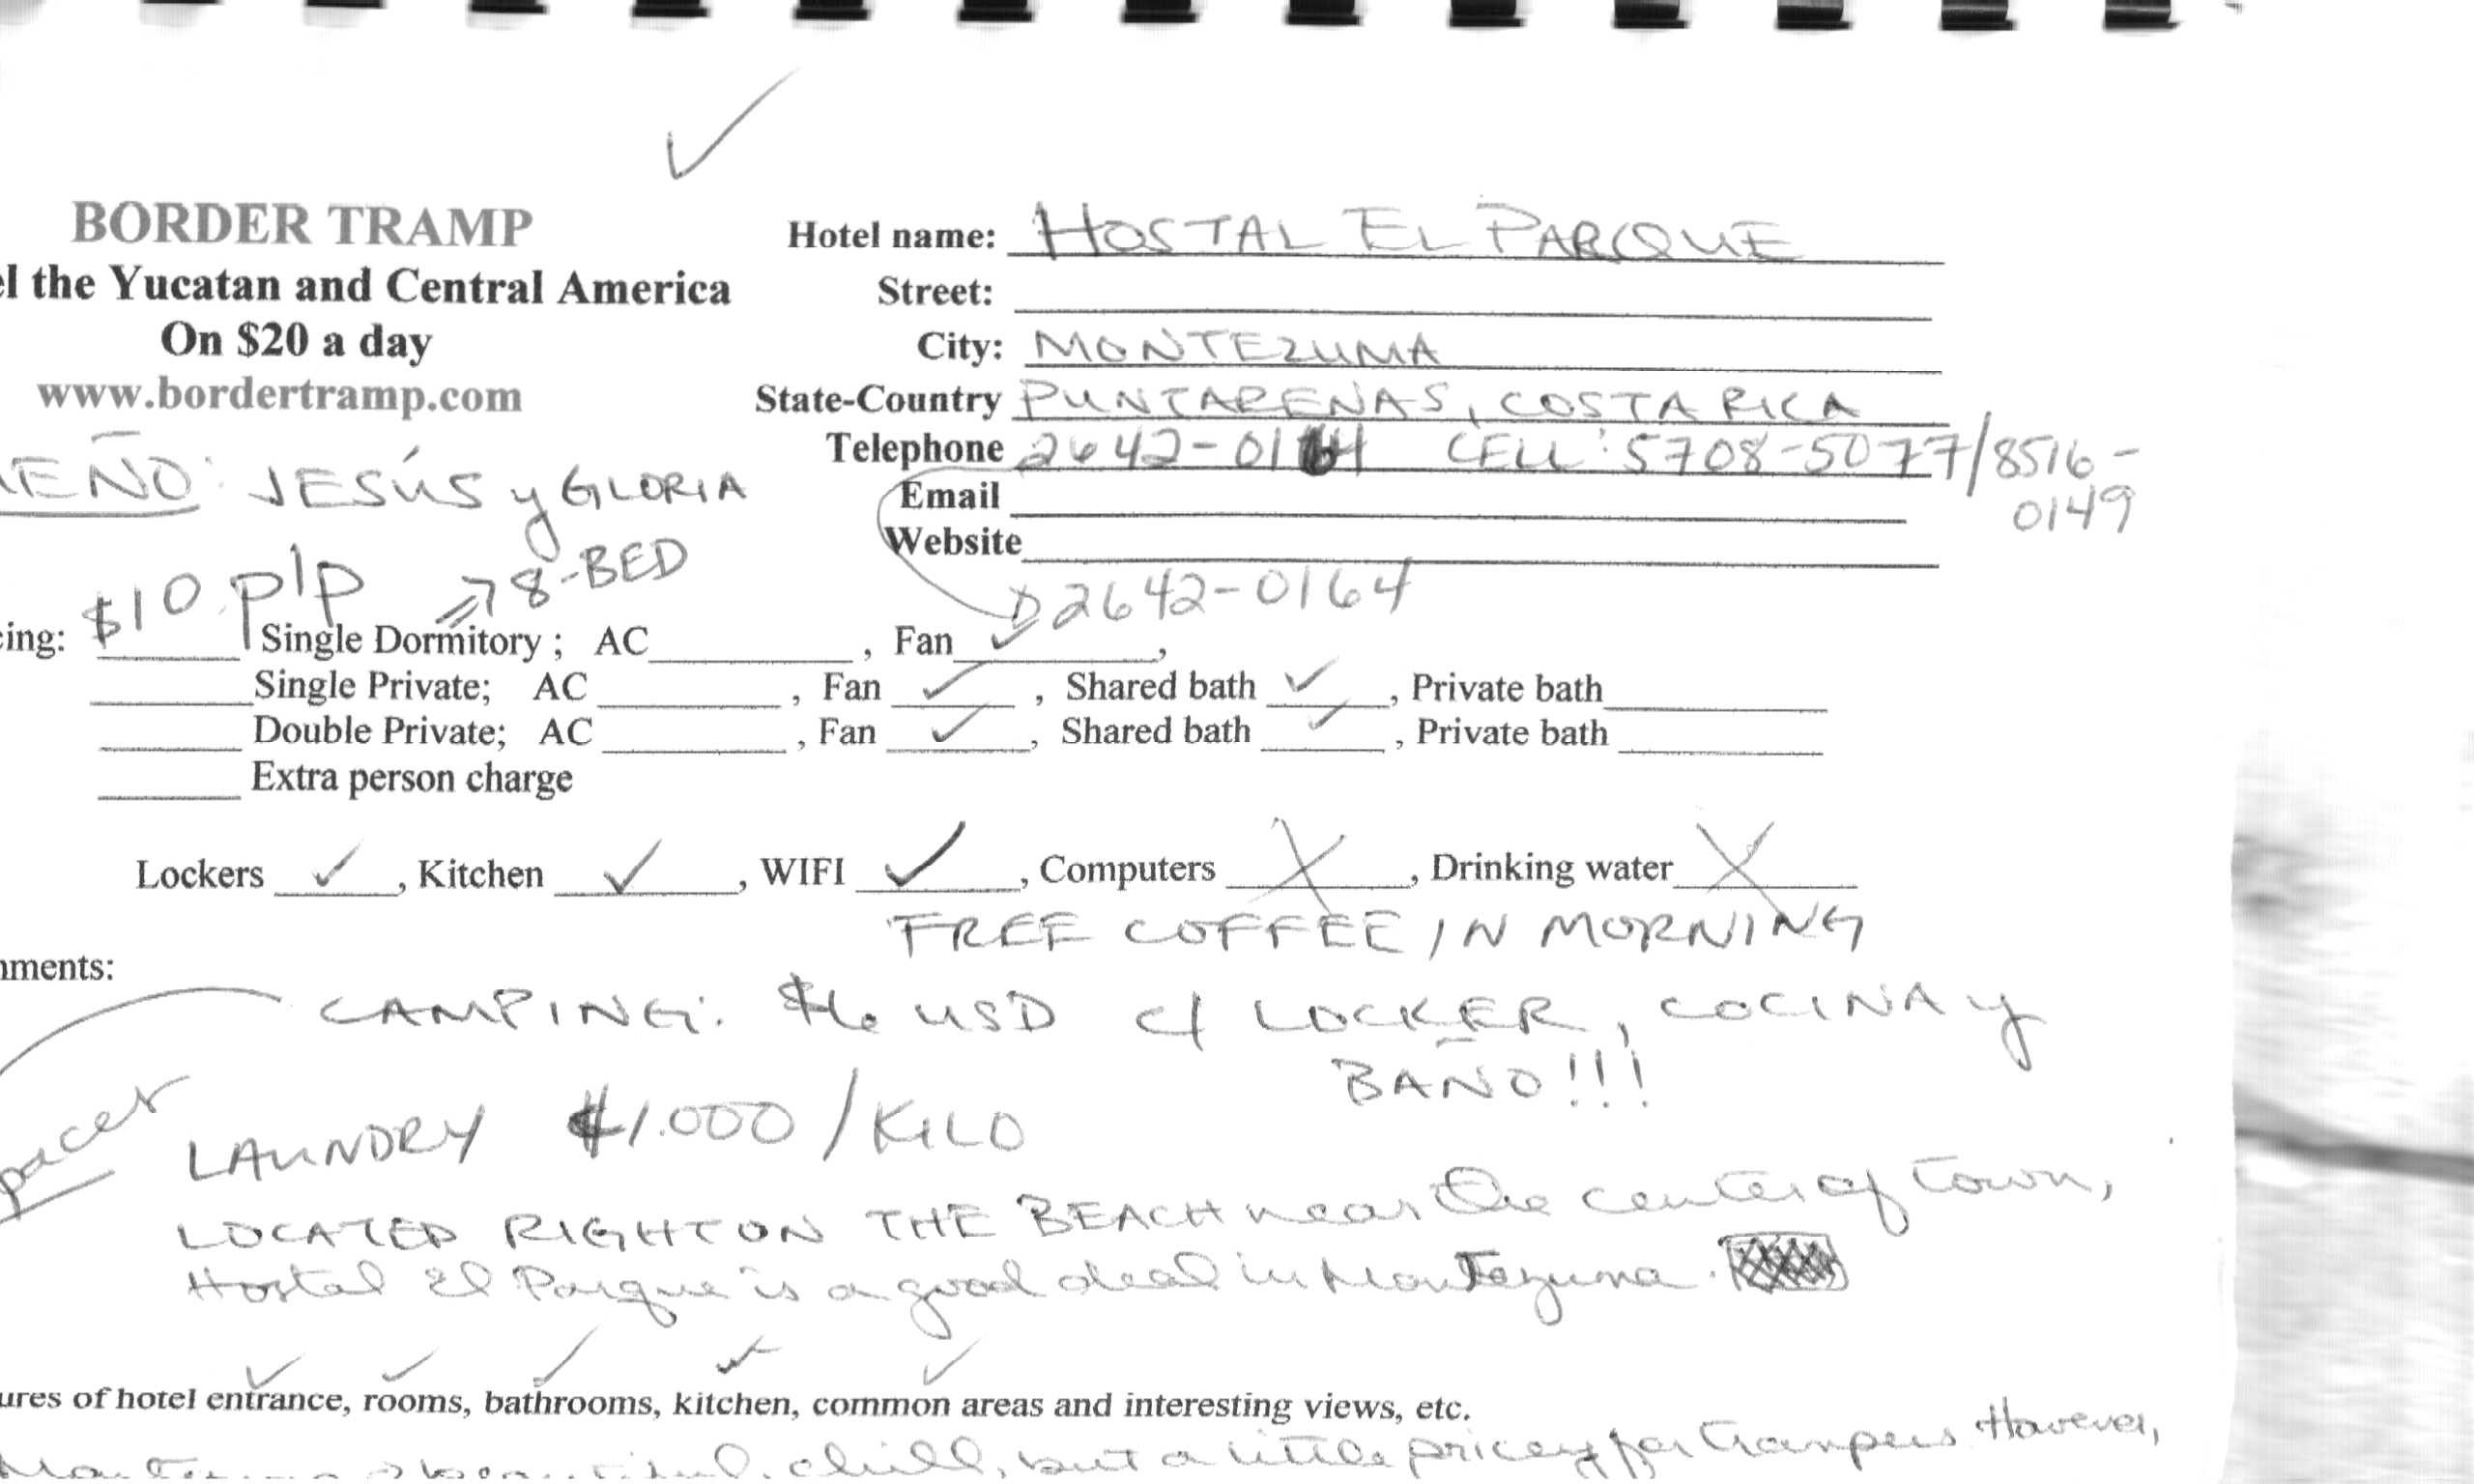 BORDER TRAMP
l the Yucatan and Central America
On $20 a day
www.bordertramp.com
EÑO: JESÚS y GLORIA
Hotel name: HOSTAL EL PARQUE
Street:
City: MONTEZUMA
State-Country PUNTARENAS, COSTA RICA
Telephone 2642-01 CELL: 5708-5077/8516-
0149
Email
Website
2642-0164
$10 p/p → 8-BED
ing: Single Dormitory; AC , Fan ✓,
Single Private; AC , Fan ✓, Shared bath ✓, Private bath
Double Private; AC , Fan ✓, Shared bath ✓, Private bath
Extra person charge
Lockers ✓, Kitchen ✓, WIFI ✓, Computers X, Drinking water X
FREE COFFEE IN MORNING
ments:
CAMPING: $6 USD c/ LOCKER, COCINA y
BAÑO!!!
LAUNDRY ₡1.000/KILO
LOCATED RIGHT ON THE BEACH near the center of town,
Hostal El Parque is a good deal in Montezuma.
ures of hotel entrance, rooms, bathrooms, kitchen, common areas and interesting views, etc.
chill, but a little pricey for trampers However,